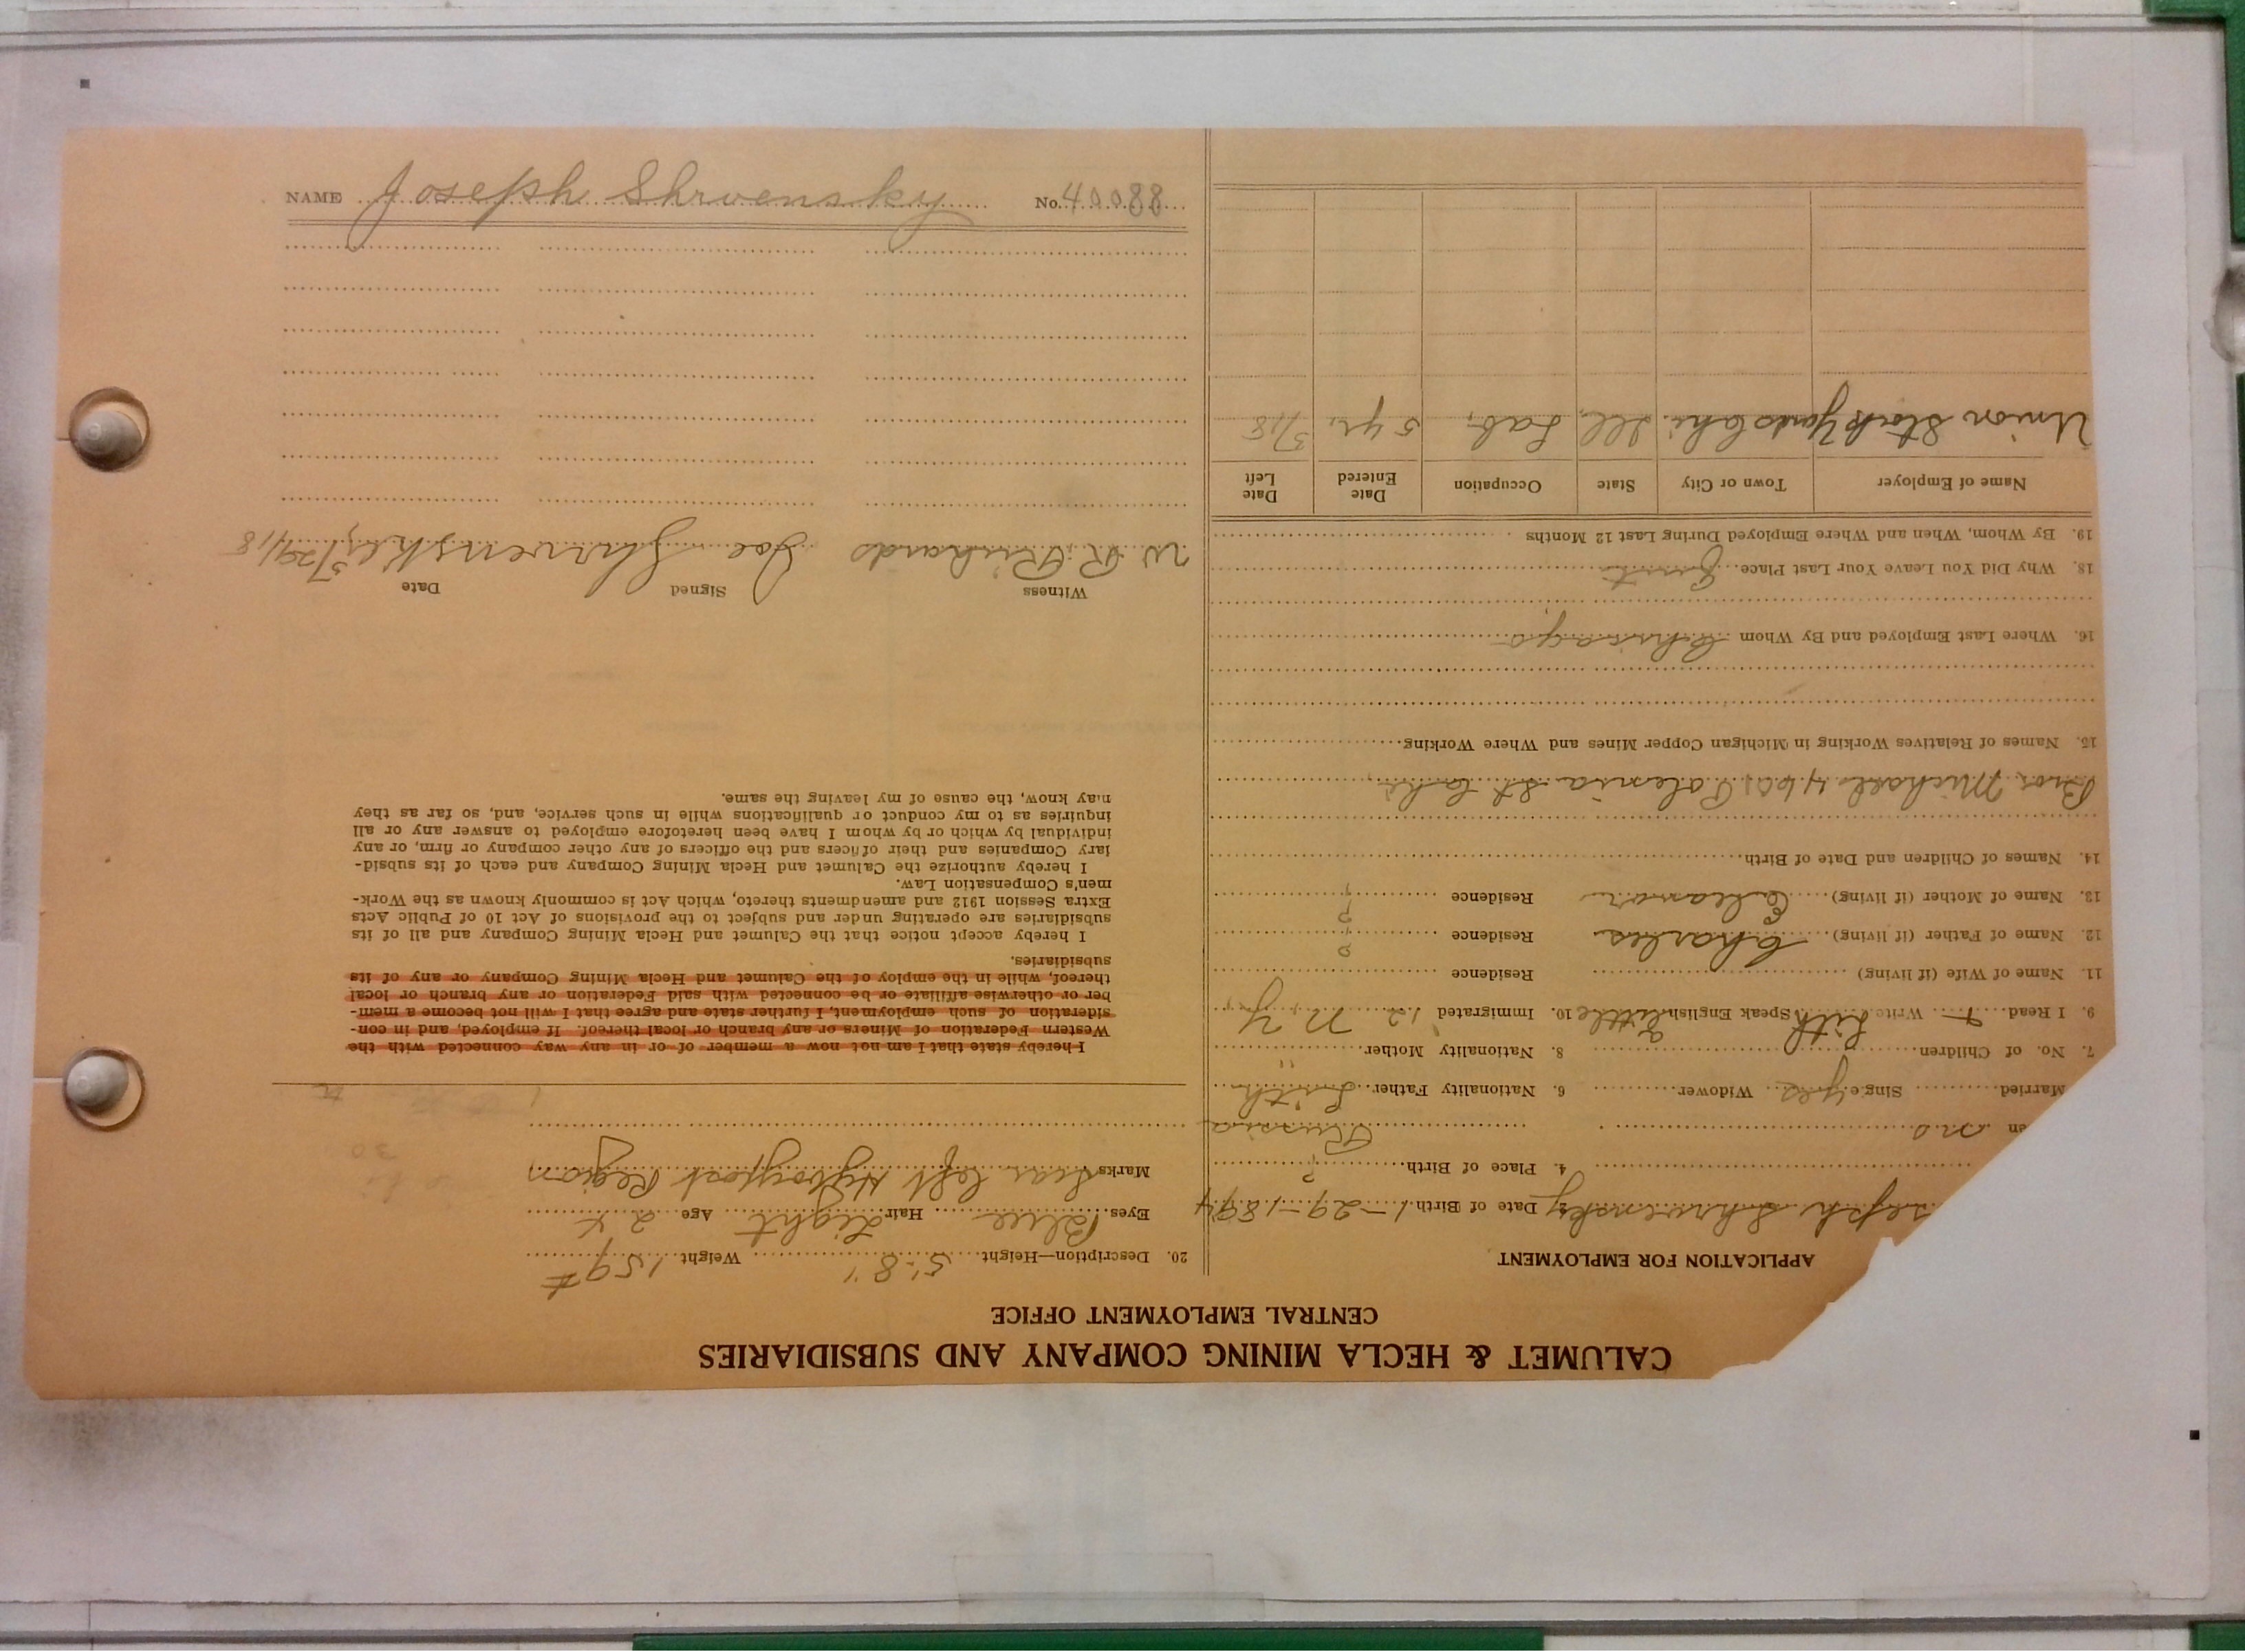 CALUMET & HECLA MINING COMPANY AND SUBSIDIARIES
CENTRAL EMPLOYMENT OFFICE
APPLICATION FOR EMPLOYMENT
seph Shrvensky Date of Birth 1-29-1894
4. Place of Birth ?
en no Russia
Married Single yes Widower 6. Nationality Father Lith
7. No. of Children 8. Nationality Mother "
9. I Read Write Lith Speak English little 10. Immigrated 1912 N Y
11. Name of Wife (if living) Residence
12. Name of Father (if living) Charles Residence ?
13. Name of Mother (if living) Eleanor Residence ?
14. Names of Children and Date of Birth
Bro. Michael 4601 St Chi.
15. Names of Relatives Working in Michigan Copper Mines and Where Working
16. Where Last Employed and By Whom Chicago
18. Why Did You Leave Your Last Place Quit
19. By Whom, When and Where Employed During Last 12 Months
Name of Employer Town or City State Occupation Date Entered Date Left
Union Stock Yards Chi. Ill. Lab. 5 yr. 5/18
20. Description—Height 5'-8" Weight 159#
Eyes Blue Hair Light Age 24
Marks Scar left Region
I hereby state that I am not now a member of or in any way connected with the
Western Federation of Miners or any branch or local thereof. If employed, and in con-
sideration of such employment, I further state and agree that I will not become a mem-
ber or otherwise affiliate or be connected with said Federation or any branch or local
thereof, while in the employ of the Calumet and Hecla Mining Company or any of its
subsidiaries.
I hereby accept notice that the Calumet and Hecla Mining Company and all of its
subsidiaries are operating under and subject to the provisions of Act 10 of Public Acts
Extra Session 1912 and amendments thereto, which Act is commonly known as the Work-
men's Compensation Law.
I hereby authorize the Calumet and Hecla Mining Company and each of its subsid-
iary Companies and their officers and the officers of any other company or firm, or any
individual by which or by whom I have been heretofore employed to answer any or all
inquiries as to my conduct or qualifications while in such service, and, so far as they
may know, the cause of my leaving the same.
Witness Signed Date
W. R. Richards Joe Shrvensky 5/29/18
NAME Joseph Shrvensky No. 40088